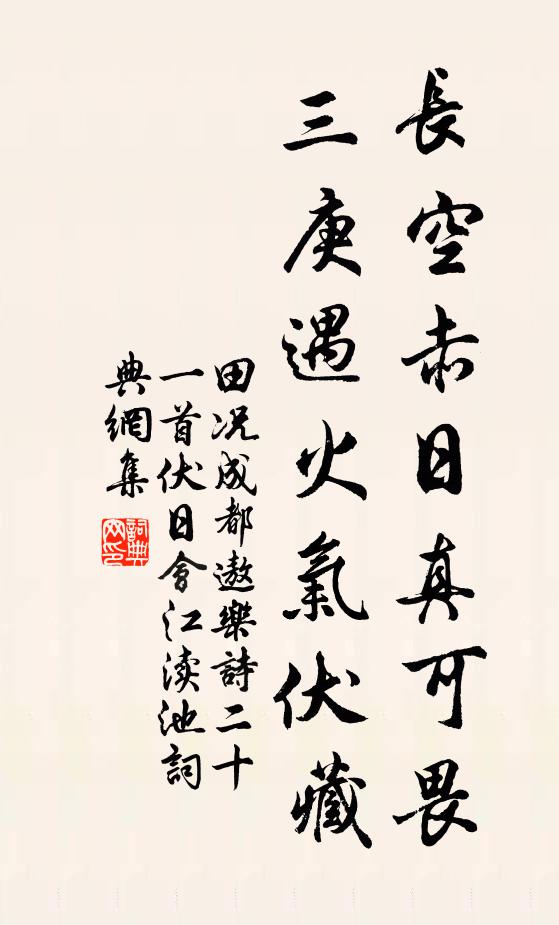 長空赤日真可畏
三庚遇火氣伏藏
田况成都遨樂詩二十
一首伏日會江渎池詞
典網集
詞典
网印